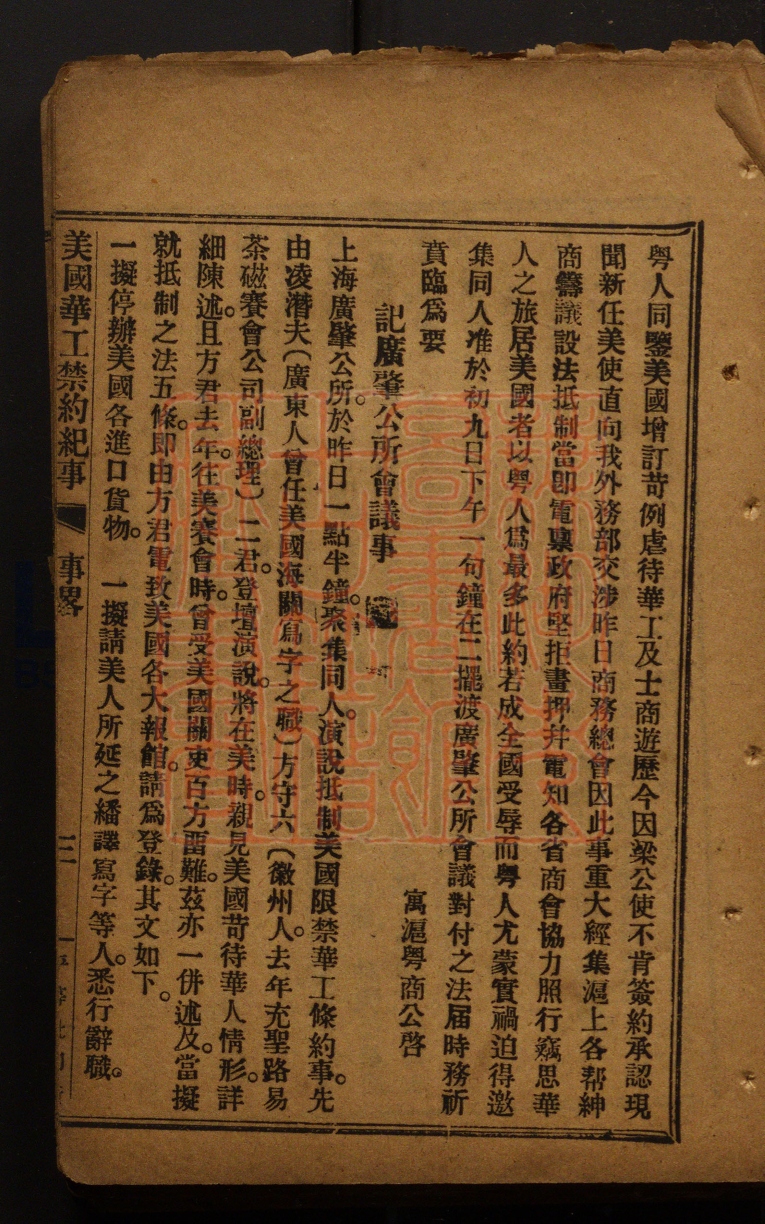 粤人同鑒美國增訂苛例虐待華工及士商遊歷今因梁公使不肯簽約承認現
聞新任美使直向我外務部交涉昨日商務總會因此事重大經集滬上各帮紳
商籌議設法抵制當卽電禀政府堅拒畫押幷電知各省商會協力照行竊思華
人之旅居美國者以粤人爲最多此約若成全國受辱而粤人尤蒙實禍迫得邀
集同人准於初九日下午一句鐘在二擺渡廣肇公所會議對付之法届時務祈
賁臨爲要
寓滬粤商公啓
記廣肇公所會議事
上海廣肇公所。於昨日一點半鐘。聚集同人。演說抵制美國限禁華工條約事。先
由凌潛夫（廣東人曾任美國海關寫字之職）方守六（徽州人。去年充聖路易
茶磁賽會公司副總理）二君。登壇演說。將在美時。親見美國苛待華人情形。詳
細陳述。且方君去年。往美賽會時。曾受美國關吏百方留難。茲亦一併述及。當擬
就抵制之法五條。卽由方君電致美國各大報館。請爲登錄。其文如下。
一擬停辦美國各進口貨物。 一擬請美人所延之繙譯寫字等人。悉行辭職。
美國華工禁約紀事 事畧 三